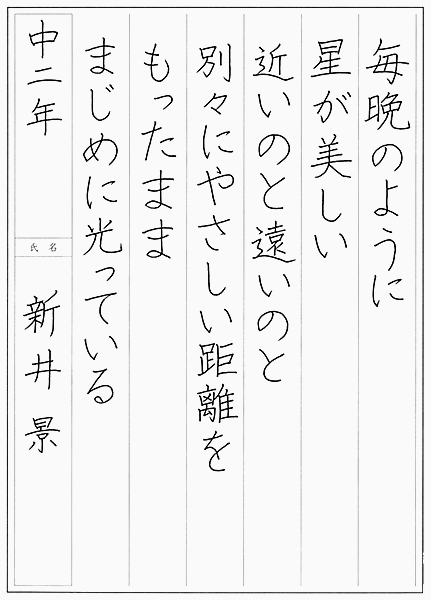 毎晩のように
星が美しい
近いのと遠いのと
別々にやさしい距離を
もったまま
まじめに光っている
中二年
氏名
新井 景